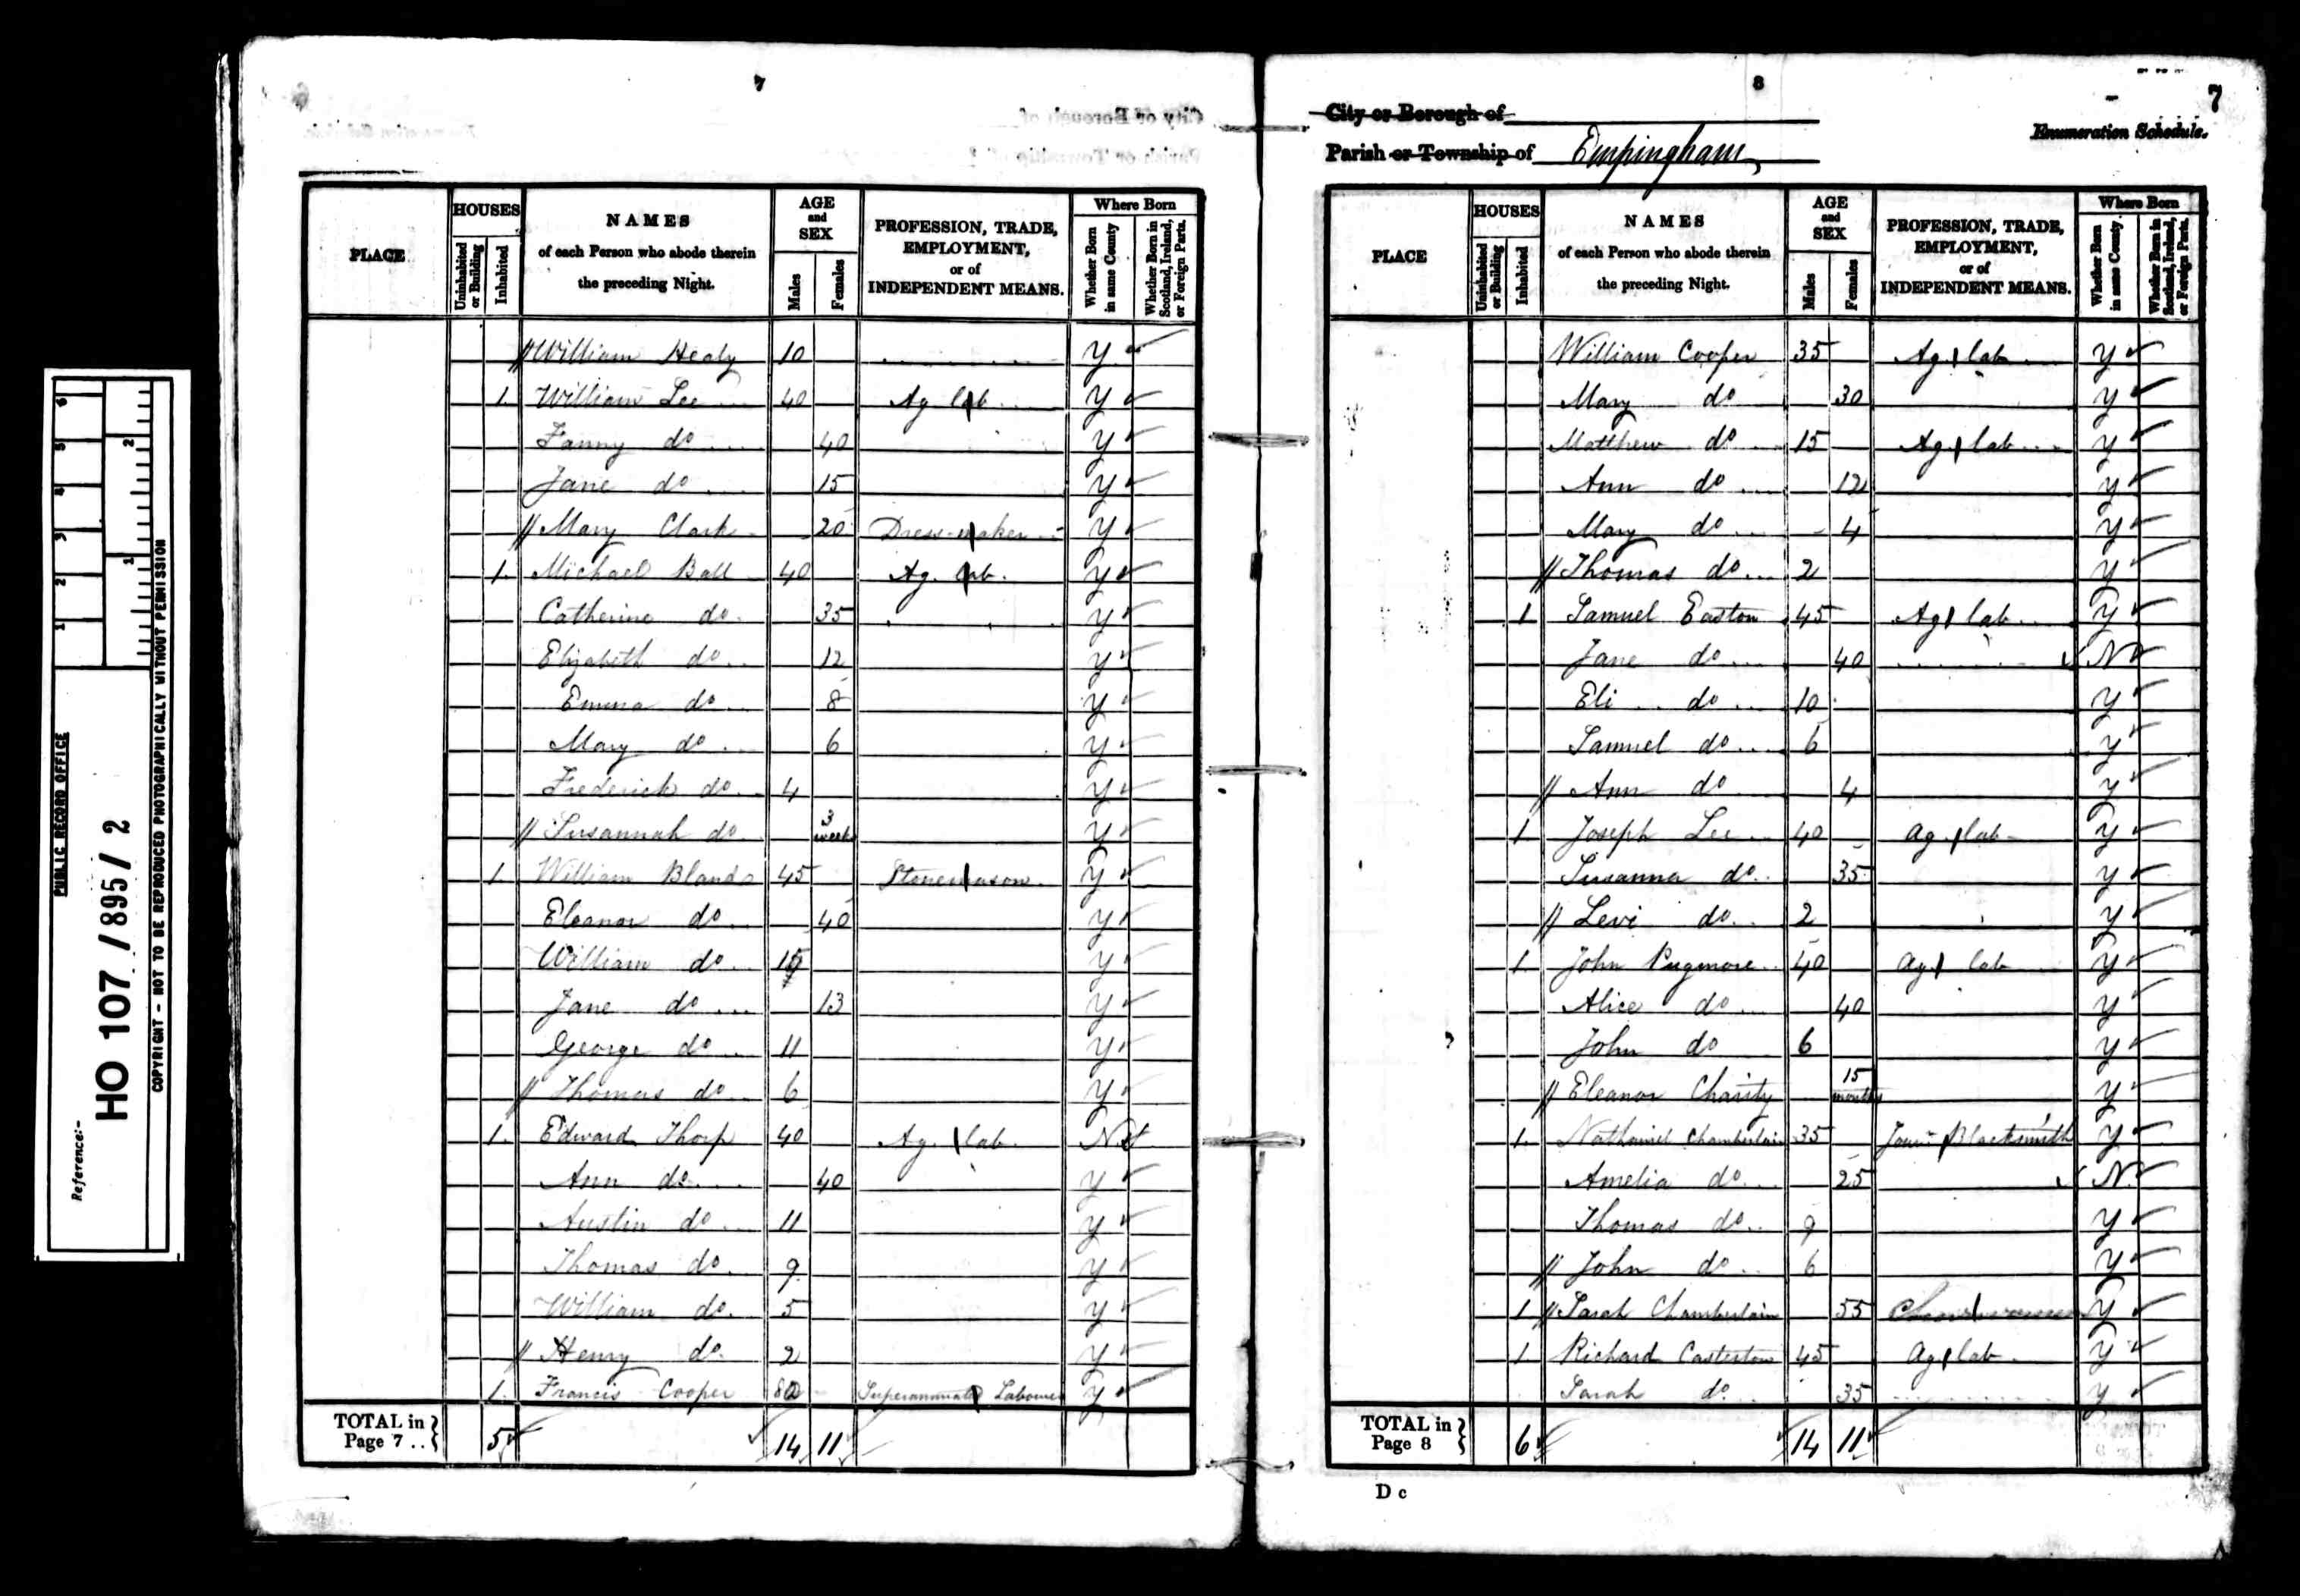 PUBLIC RECORD OFFICE
Reference:-
HO 107 / 895 / 2
COPYRIGHT - NOT TO BE REPRODUCED PHOTOGRAPHICALLY WITHOUT PERMISSION
1 2 3 4 5 6
1 2
7
PLACE
HOUSES
Uninhabited or Building
Inhabited
NAMES
of each Person who abode therein
the preceding Night.
AGE and SEX
Males
Females
PROFESSION, TRADE, EMPLOYMENT, or of INDEPENDENT MEANS.
Where Born
Whether Born in same County
Whether Born in Scotland, Ireland, or Foreign Parts.
William Healy 10 Y
1 William Lee 40 Ag lab Y
Fanny do 40 Y
Jane do 15 Y
Mary Clark 20 Dress-maker Y
1 Michael Ball 40 Ag. lab. Y
Catherine do 35 Y
Elizabeth do 12 Y
Emma do 8 Y
Mary do 6 Y
Frederick do 4 Y
Susannah do 3 weeks Y
1 William Bland 45 Stonemason Y
Eleanor do 40 Y
William do 15 Y
Jane do 13 Y
George do 11 Y
Thomas do 6 Y
1 Edward Thorp 40 Ag. lab. N
Ann do 40 Y
Austin do 11 Y
Thomas do 9 Y
William do 5 Y
Henry do 2 Y
1 Francis Cooper 80 Superannuated Labourer Y
TOTAL in Page 7 .. 5 14 11
8
7
City or Borough of
Enumeration Schedule.
Parish or Township of Empingham
PLACE
HOUSES
Uninhabited or Building
Inhabited
NAMES
of each Person who abode therein
the preceding Night.
AGE and SEX
Males
Females
PROFESSION, TRADE, EMPLOYMENT, or of INDEPENDENT MEANS.
Where Born
Whether Born in same County
Whether Born in Scotland, Ireland, or Foreign Parts.
William Cooper 35 Ag. lab Y
Mary do 30 Y
Matthew do 15 Ag. lab Y
Ann do 12 Y
Mary do 4 Y
Thomas do 2 Y
1 Samuel Easton 45 Ag lab Y
Jane do 40 N
Eli do 10 Y
Samuel do 6 Y
Ann do 4 Y
1 Joseph Lee 40 Ag. lab Y
Susanna do 35 Y
Levi do 2 Y
1 John Pugmore 40 Ag. lab Y
Alice do 40 Y
John do 6 Y
Eleanor Charity 15 months Y
1 Nathaniel Chamberlain 35 Jour Blacksmith Y
Amelia do 25 N
Thomas do 9 Y
John do 6 Y
1 Sarah Chamberlain 55 Charwoman Y
1 Richard Casterton 45 Ag lab Y
Sarah do 35 Y
TOTAL in Page 8 6 14 11
D c